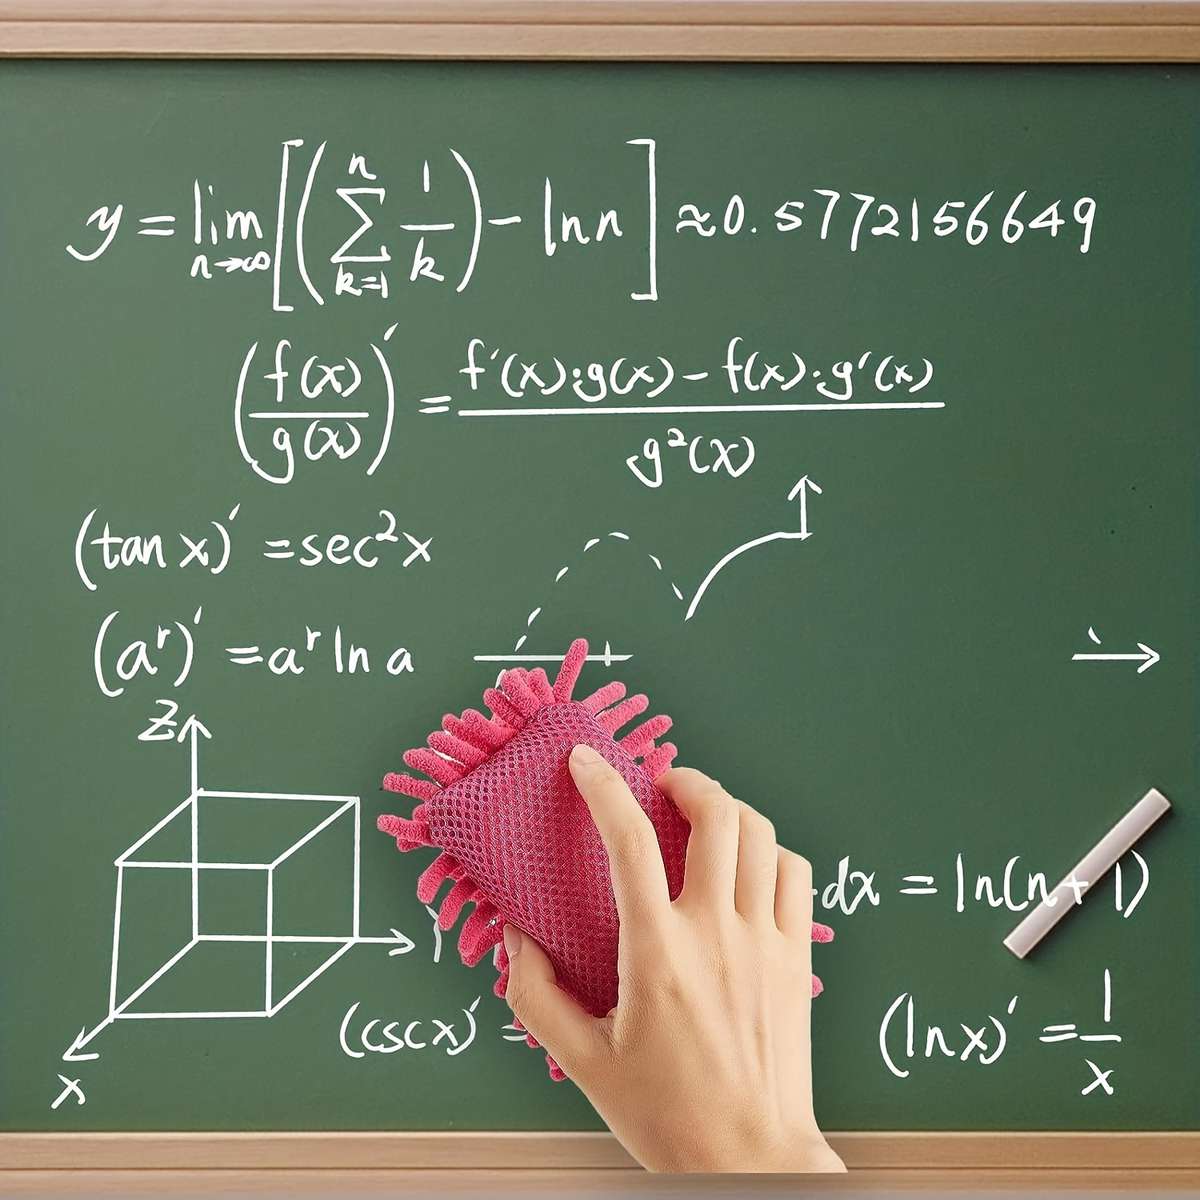 y = lim n→∞ [(∑ n k=1 1/k) - ln n] ≈ 0.5772156649
(f(x)/g(x))' = f'(x)·g(x) - f(x)·g'(x) / g²(x)
(tan x)' = sec²x
(aʳ)' = aʳ ln a
Z
·dx = ln(n+1)
(cscx)' =
(lnx)' = 1/x
x